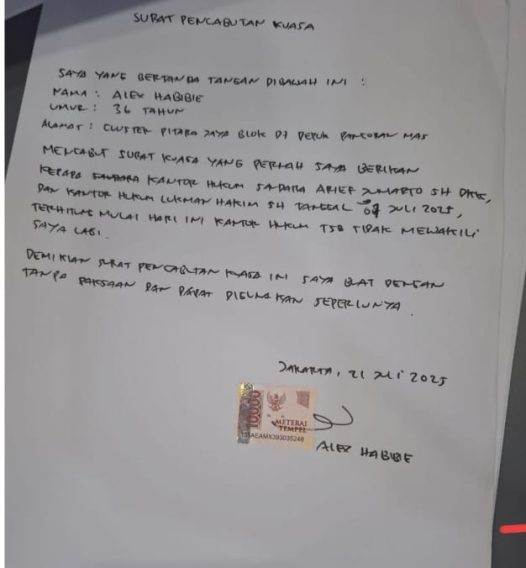 SURAT PENCABUTAN KUASA
SAYA YANG BERTANDA TANGAN DIBAWAH INI :
NAMA : ALEX HABIBIE
UMUR : 36 TAHUN
ALAMAT : CLUSTER PITARA JAYA BLOK D7 DEPOK PANCORAN MAS
MENCABUT SURAT KUASA YANG PERNAH SAYA BERIKAN
KEPADA KANTOR HUKUM SAUDARA ARIEF SH DKK,
DAN KANTOR HUKUM LUKMAN HAKIM SH TANGGAL 07 JULI 2025,
TERHITUNG MULAI HARI INI KANTOR HUKUM TSB TIDAK MEWAKILI
SAYA LAGI.
DEMIKIAN SURAT PENCABUTAN KUASA INI SAYA BUAT DENGAN
TANPA PAKSAAN DAN DAPAT DIGUNAKAN SEPERLUNYA.
JAKARTA, 21 JULI 2025
10000
METERAI
TEMPEL
ALEX HABIBIE